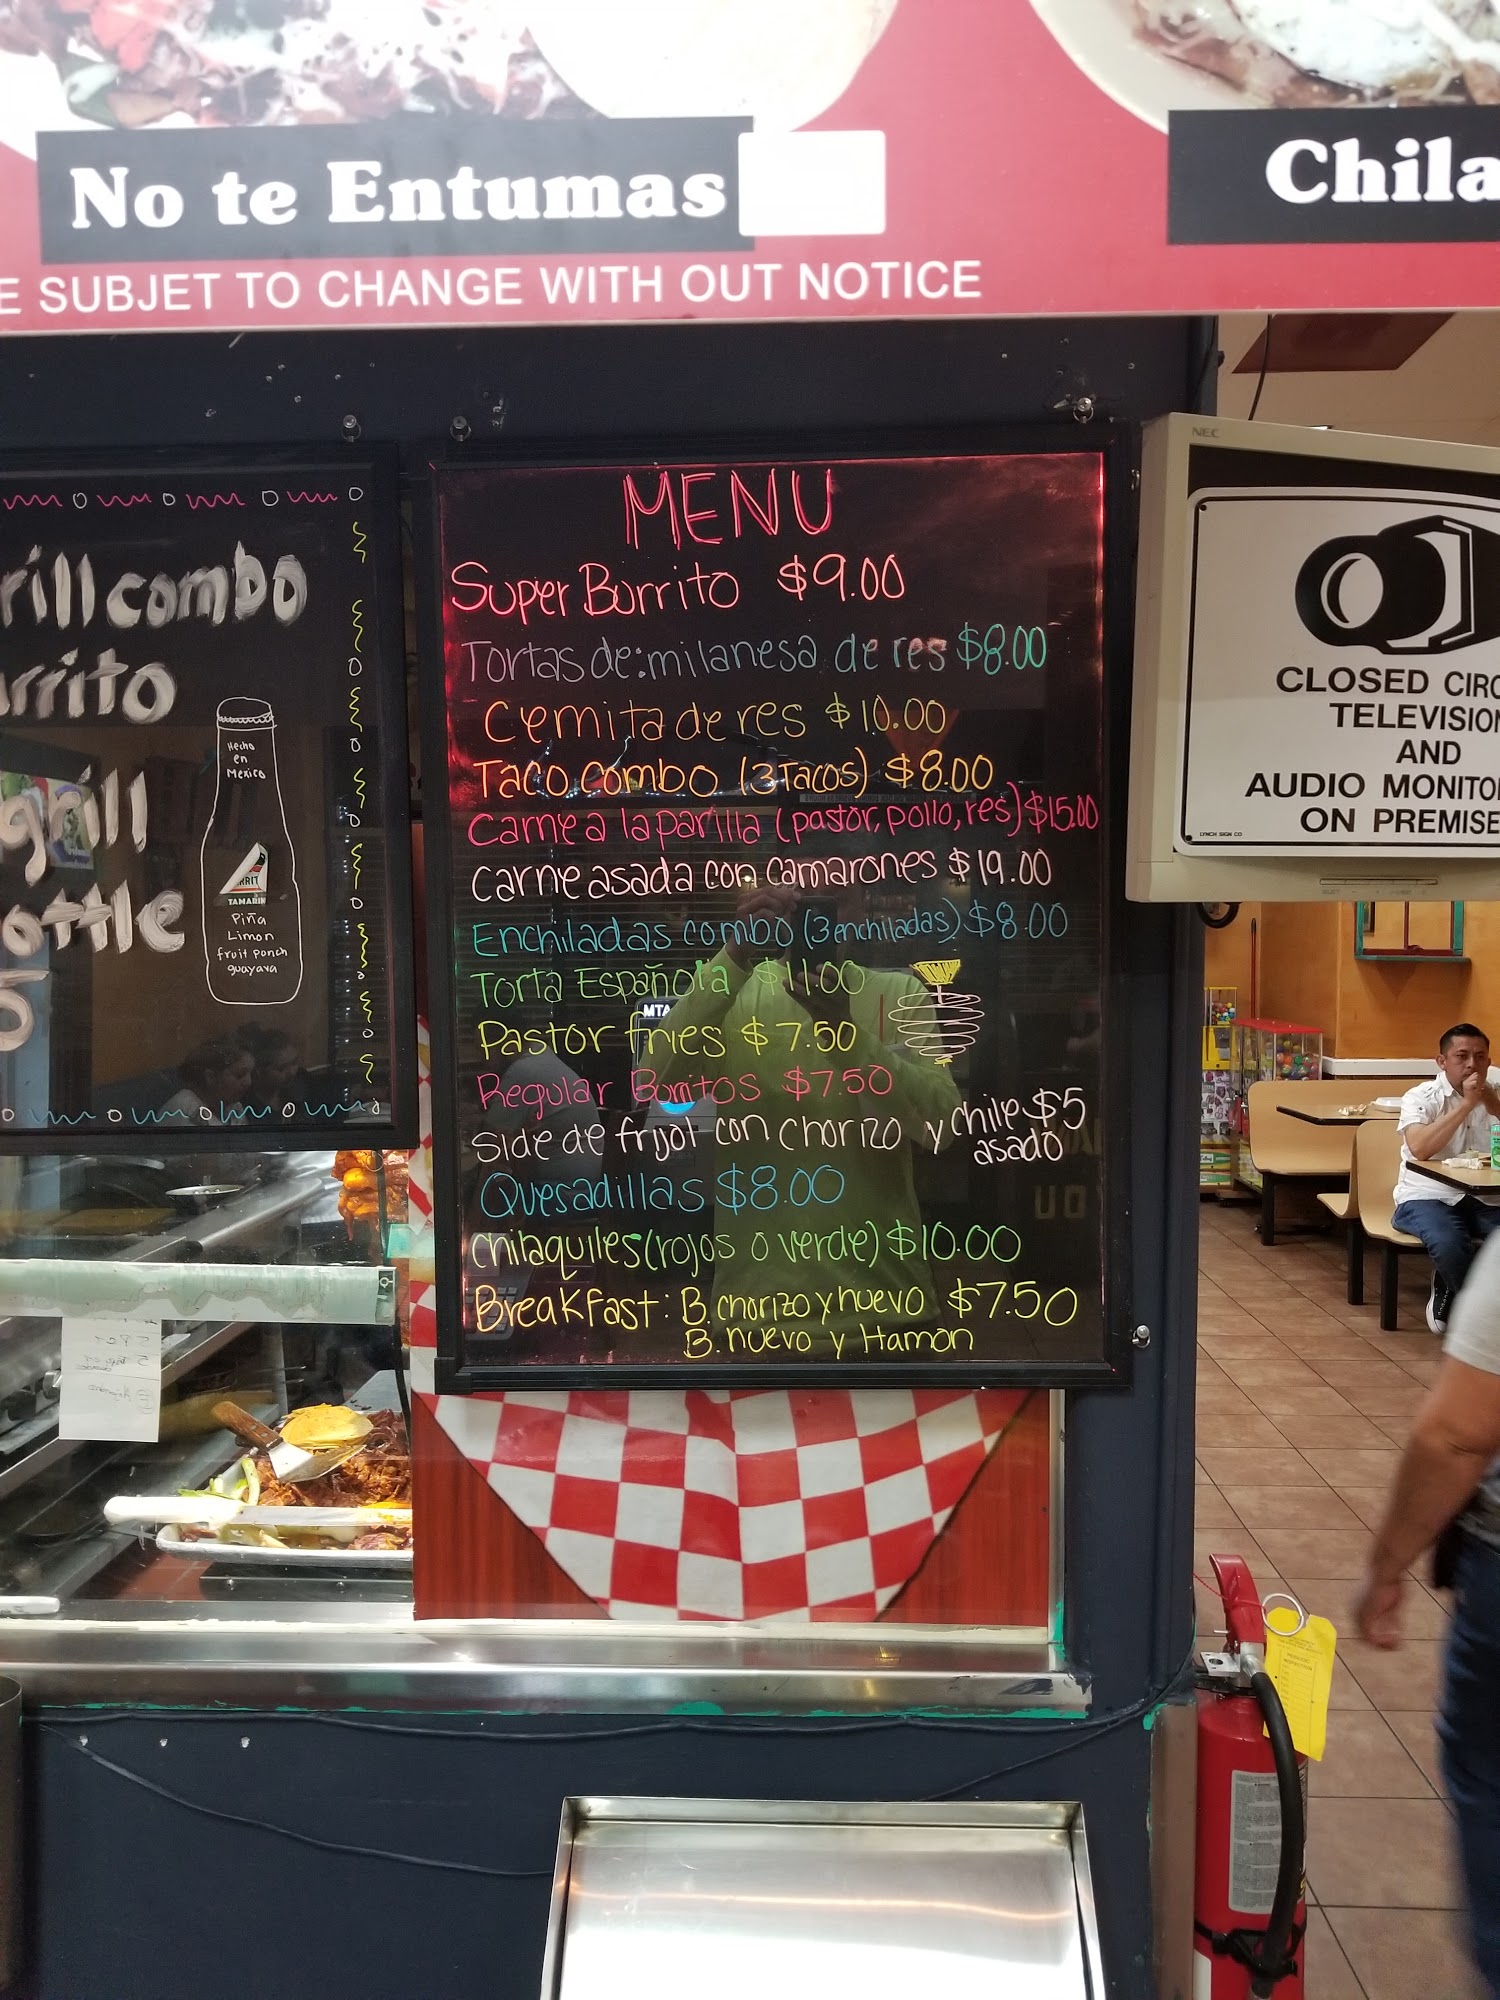 No te Entumas
Chila
E SUBJET TO CHANGE WITH OUT NOTICE
rill combo
rrito
grill
ottle
Hecho
en
Mexico
TAMARIN
Piña
Limon
fruit ponch
guayava
MENU
Super Burrito $9.00
Tortas de: milanesa de res $8.00
Cemita de res $10.00
Taco combo (3 Tacos) $8.00
Carne a la parilla (pastor, pollo, res) $15.00
Carne asada con camarones $19.00
Enchiladas combo (3 enchiladas) $8.00
Torta Española $11.00
Pastor fries $7.50
Regular Burritos $7.50
Side de frijol con chorizo y chile $5
asado
Quesadillas $8.00
chilaquiles (rojos o verde) $10.00
Breakfast: B. chorizo y huevo $7.50
B. huevo y Hamon
NEC
CLOSED CIRC
TELEVISION
AND
AUDIO MONITO
ON PREMISE
LYNCH SIGN CO
MTA